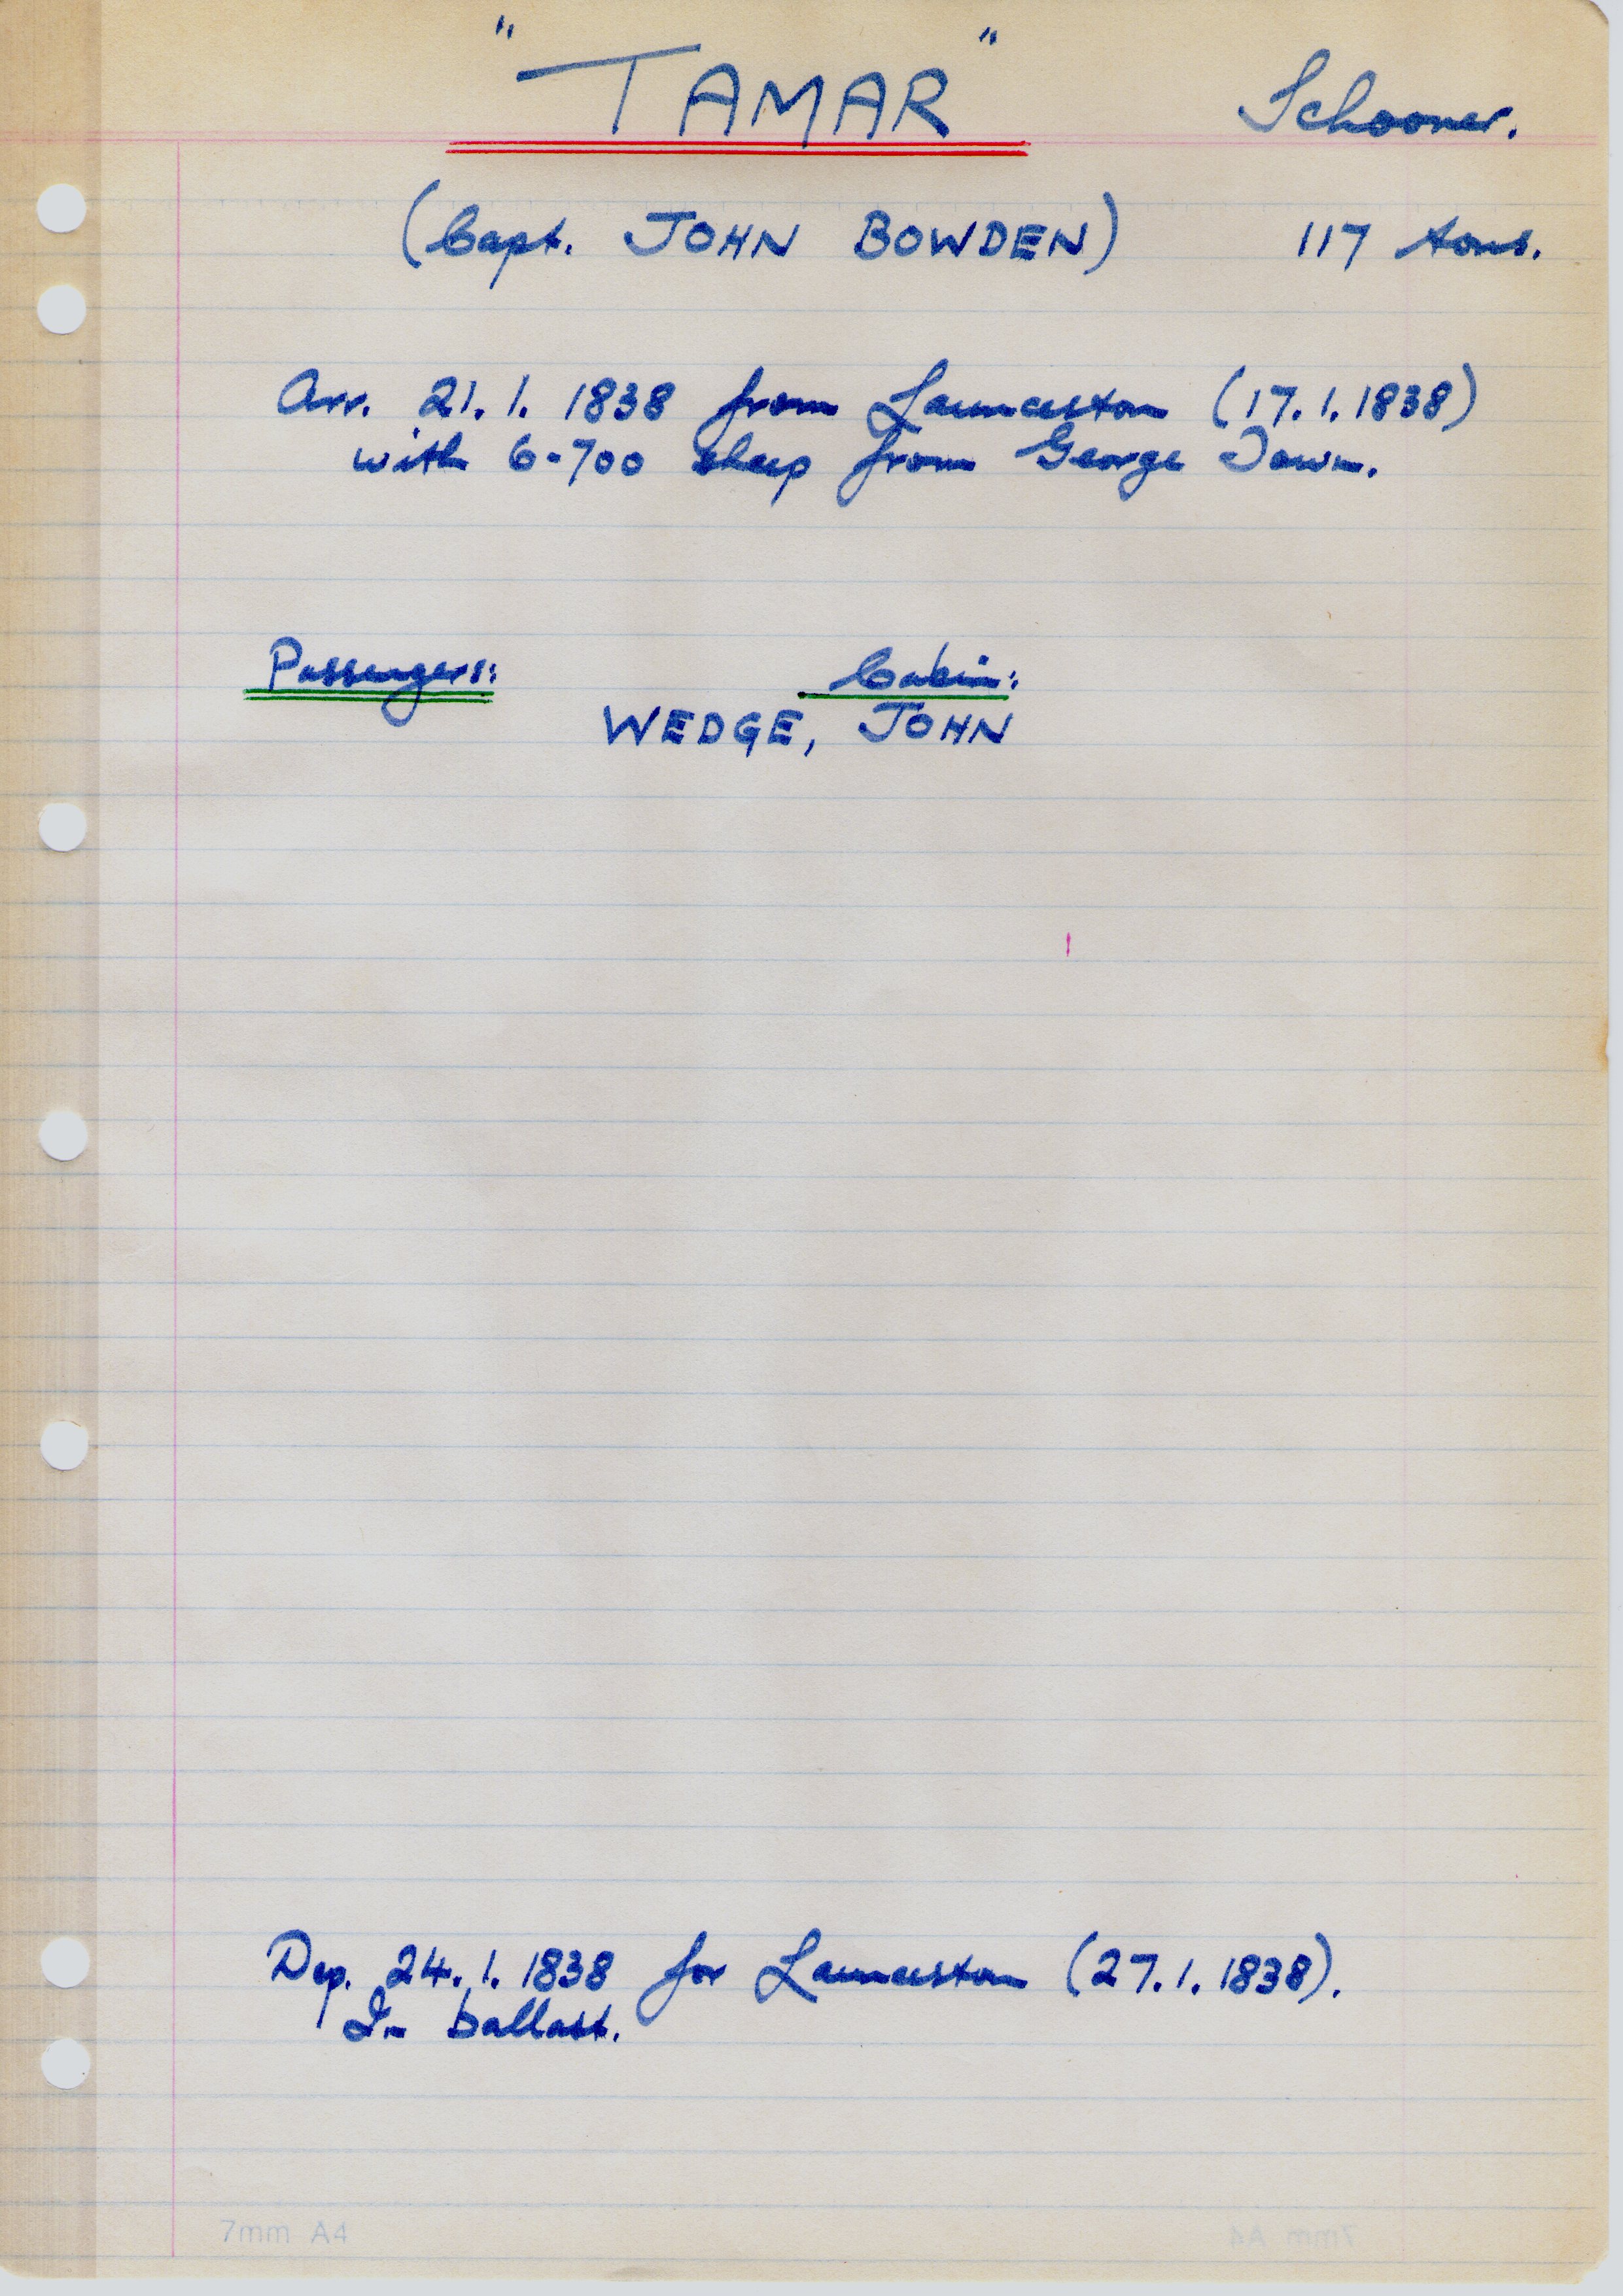 "TAMAR" Schooner.
(Capt. JOHN BOWDEN) 117 tons.
Arr. 21.1.1838 from Launceston (17.1.1838)
with 6-700 sheep from George Town.
Passengers: Cabin:
WEDGE, JOHN
Dep. 24.1.1838 for Launceston (27.1.1838).
In ballast.
7mm A4 7mm A4